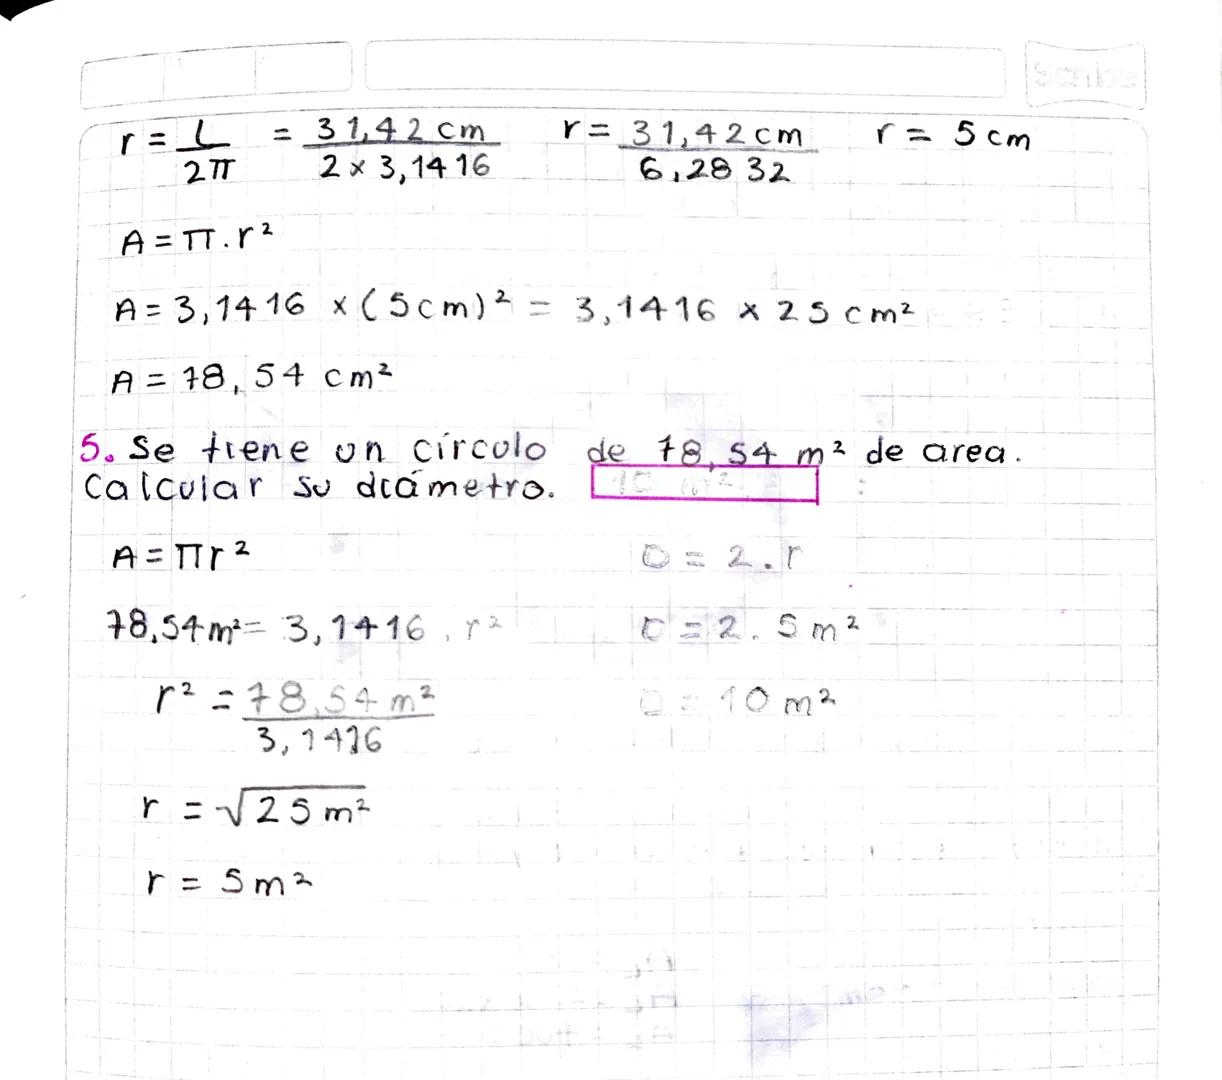 Scribe
r = L/2π = 31,42 cm / 2 x 3,1416 r = 31,42 cm / 6,2832 r = 5 cm
A = π.r²
A = 3,1416 x (5cm)² = 3,1416 x 25 cm²
A = 78,54 cm²
5. Se tiene un círculo de 78,54 m² de area.
Calcular su diámetro. 10 m²
A = πr² D = 2.r
78,54 m² = 3,1416 . r² D = 2. 5 m²
r² = 78,54 m² / 3,1416 D = 10 m²
r = √25 m²
r = 5 m²